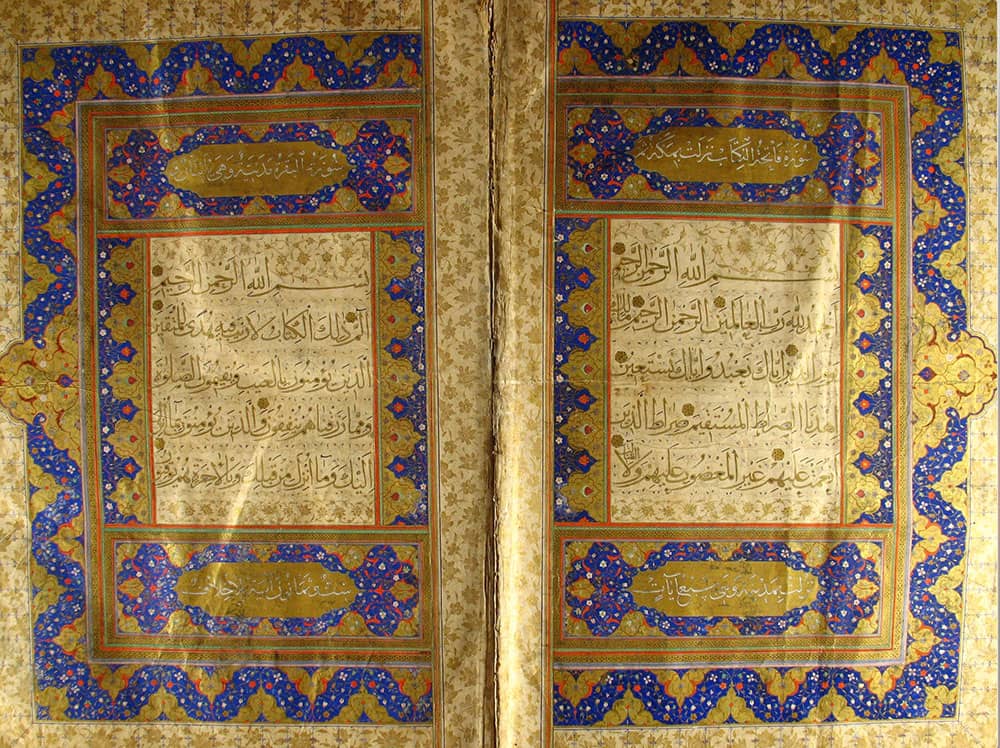 سورة فاتحة الكتاب نزلت بمكة
بسم الله الرحمن الرحيم
الحمد لله رب العالمين الرحمن الرحيم مالك
يوم الدين اياك نعبد واياك نستعين
اهدنا الصراط المستقيم صراط الذين
انعمت عليهم غير المغضوب عليهم ولا الضالين
سبع آيات
سورة البقرة مدنية وهي مائتان
بسم الله الرحمن الرحيم
الم ذلك الكتاب لا ريب فيه هدى للمتقين
الذين يؤمنون بالغيب ويقيمون الصلوة
ومما رزقناهم ينفقون والذين يؤمنون بما انزل
اليك وما انزل من قبلك وبالاخرة هم يوقنون
ست وثمانون آية